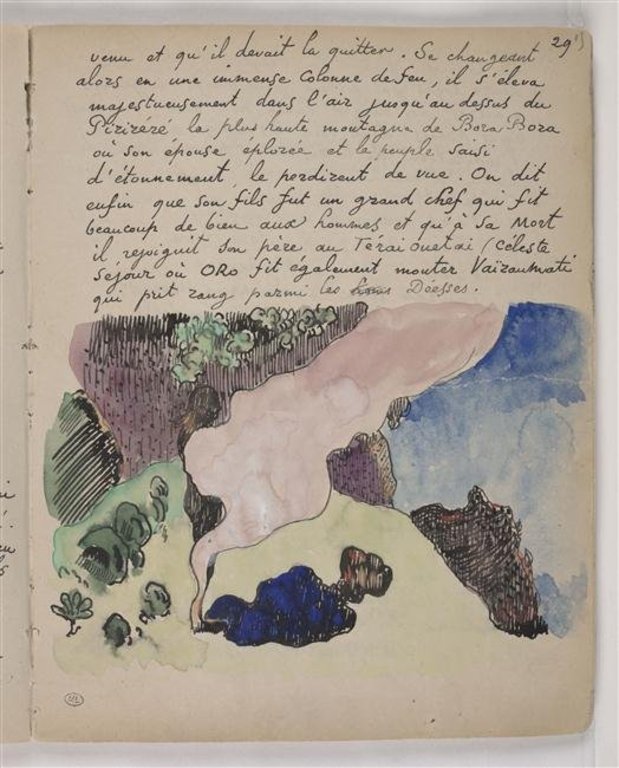 29
venu et qu'il devait la quitter. Se changeant
alors en une immense Colonne de feu, il s'éleva
majestueusement dans l'air jusqu'au dessus du
Piriréré la plus haute montagne de Bora Bora
où son épouse eplorée et le peuple saisi
d'étonnement, le perdirent de vue. On dit
enfin que son fils fut un grand chef qui fit
beaucoup de bien aux hommes et qu'à sa Mort
il rejoignit son père au Téraï ouetai (Céleste
sejour où ORo fit également monter Vaïraumati
qui prit rang parmi les Déesses.